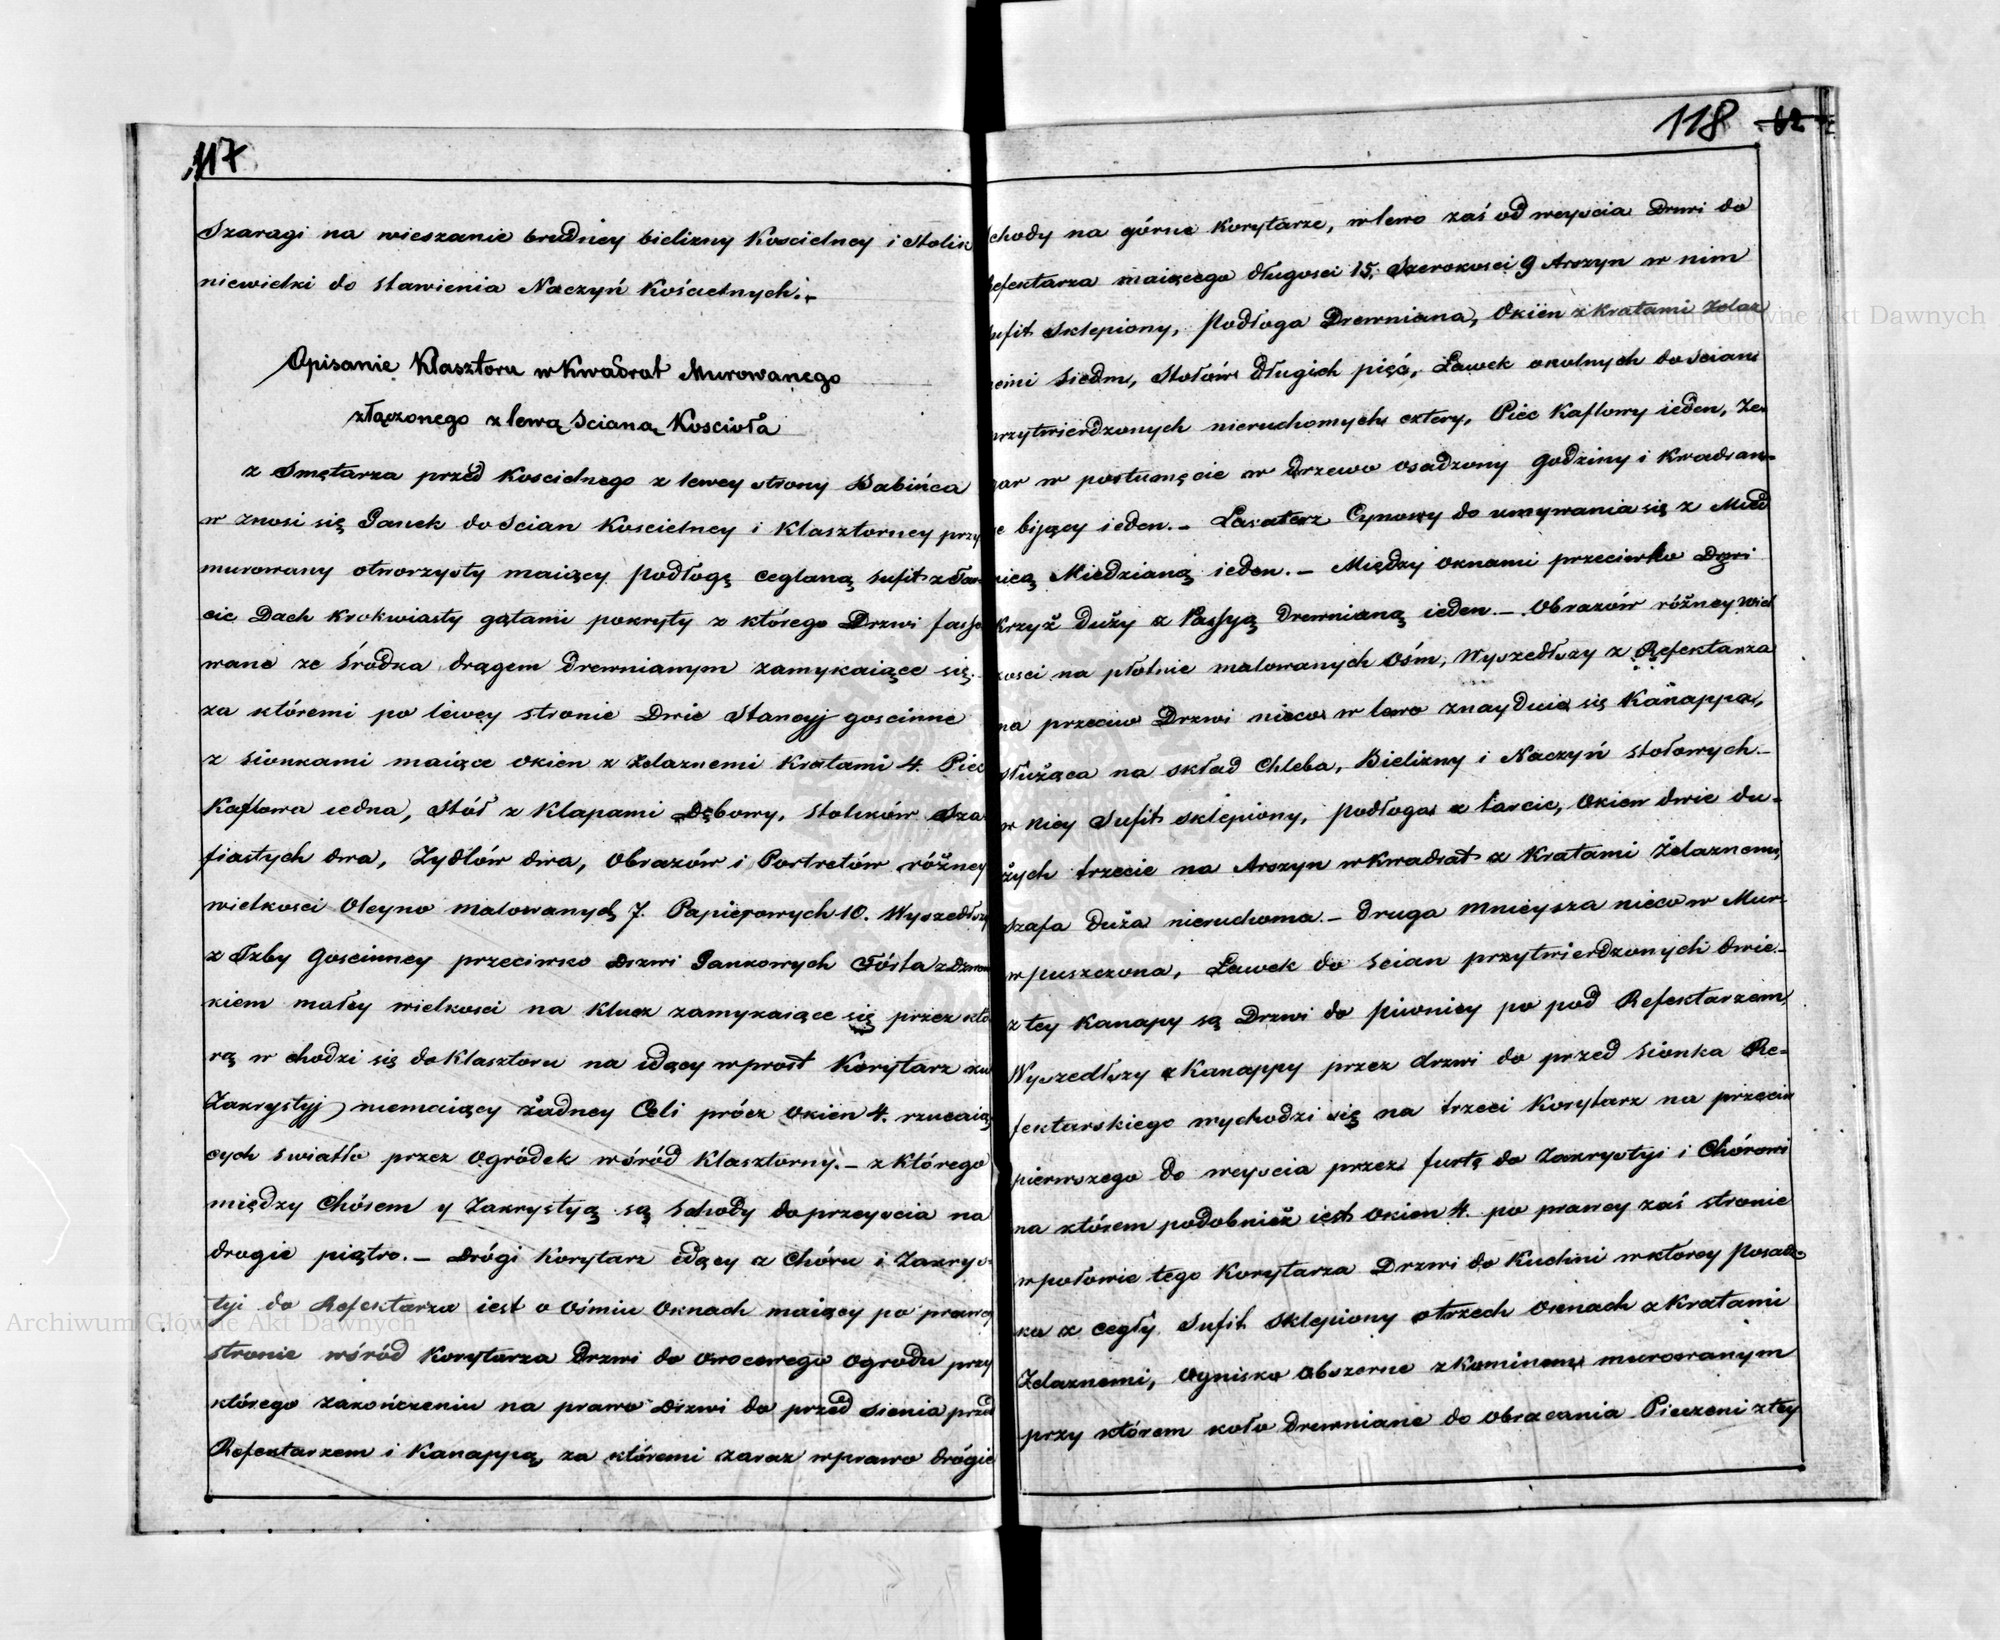 117
Szaragi na wieszanie brudney bielizny Koscielney i Stolik
niewielki do stawienia Naczyń Kościelnych.
Opisanie Klasztoru w Kwadrat Murowanego
złączonego z lewą Scianą Kościoła
z Smętarza przed Koscielnego z lewey strony Babińca
w znosi się Ganek do Scian Koscielney i Klasztorney przy
murowany otworzysty maiący podłogę ceglaną sufit z Tar-
cic Dach krokwiasty gątami pokryty z którego Drzwi fasso
wane ze środka drągem drewnianym zamykaiące się.
za któremi po lewey stronie Dwie Stancyj goscinne
z sionkami maiące okien z żelaznemi Kratami 4. Piec
Kaflowa iedna, Stół z Klapami Dębowy, stolików Sza
fiastych dwa, Zydlów dwa, Obrazów i Portretów różney
wielkosci Oleyno malowanych 7. Papierowych 10. Wyszedłszy
z Izby Goscinney przeciwko Drzwi Gankowych Fórta z Dzwon
kiem małey wielkosci na klucz zamykaiące się przez któ
rą w chodzi się do Klasztoru na idący wprost Korytarz ku
Zakrystyj niemaiący żadney Celi prócz okien 4. rzucaią
cych swiatło przez Ogródek wśród Klasztorny. – z którego
między Chórem y Zakrystyą są Schody do przeyscia na
drugie piątro. – Drógi Korytarz idący z Chóru i Zakrys-
tyi do Refektarza iest o ośmiu oknach maiący po prawey
stronie wśród Korytarza Drzwi do owocowego ogrodu przy
którego zakończeniu na prawo Drzwi do przed sienia przed
Refektarzem i Kanappą, za któremi zaraz wprawo drógie
118 62
Schody na górne Korytarze, w lewo zaś od weyscia Drzwi do
Refektarza maiącego długosci 15. Szerokosci 9 Arszyn w nim
Sufit Sklepiony, Podłoga Drewniana, Okien z kratami Żelaz
nemi Siedm, Stołów długich pięć, Ławek okolnych do ścian
przytwierdzonych nieruchomych cztery, Piec Kaflowy ieden, Ze-
gar w postumęcie w drzewo osadzony godziny i kwadran-
se bijący ieden. – Lawaterz Cynowy do umywania się z Mied
nicą Miedzianą ieden. – Między oknami przeciwko Drzwi
Krzyż Duży z Passyą drewnianą ieden. – Obrazów różney wiel
kosci na płótnie malowanych ośm, Wyszedłszy z Refektarza
na przeciw Drzwi nieco w lewo znayduie się Kanappa,
służąca na skład Chleba, Bielizny i Naczyń stołowych. –
w niey Sufit sklepiony, podłoga z tarcic, Okien dwie du-
żych trzecie na Arszyn w kwadrat z Kratami żelaznemi
Szafa Duża nieruchoma. – druga mnieysza nieco w Mur
wpuszczona, Ławek do scian przytwierdzonych dwie. –
z tey Kanapy są Drzwi do piwnicy po pod Refektarzem
Wyszedłszy z Kanappy przez drzwi do przed sionka Re-
fektarskiego wychodzi się na trzeci Korytarz na przeciw
pierwszego do weyscia przez furtę do Zakrystyi i Chórowi
na którem podobnież iest okien 4. po prawey zaś stronie
w połowie tego Korytarza Drzwi do Kuchni w ktorey Posadz-
ka z cegły Sufit Sklepiony o trzech Oknach z kratami
Żelaznemi, Ognisko obszerne z kominem murowanym
przy którem koło drewniane do obracania Pieczeni z tey
Archiwum Główne Akt Dawnych
Archiwum Główne Akt Dawnych